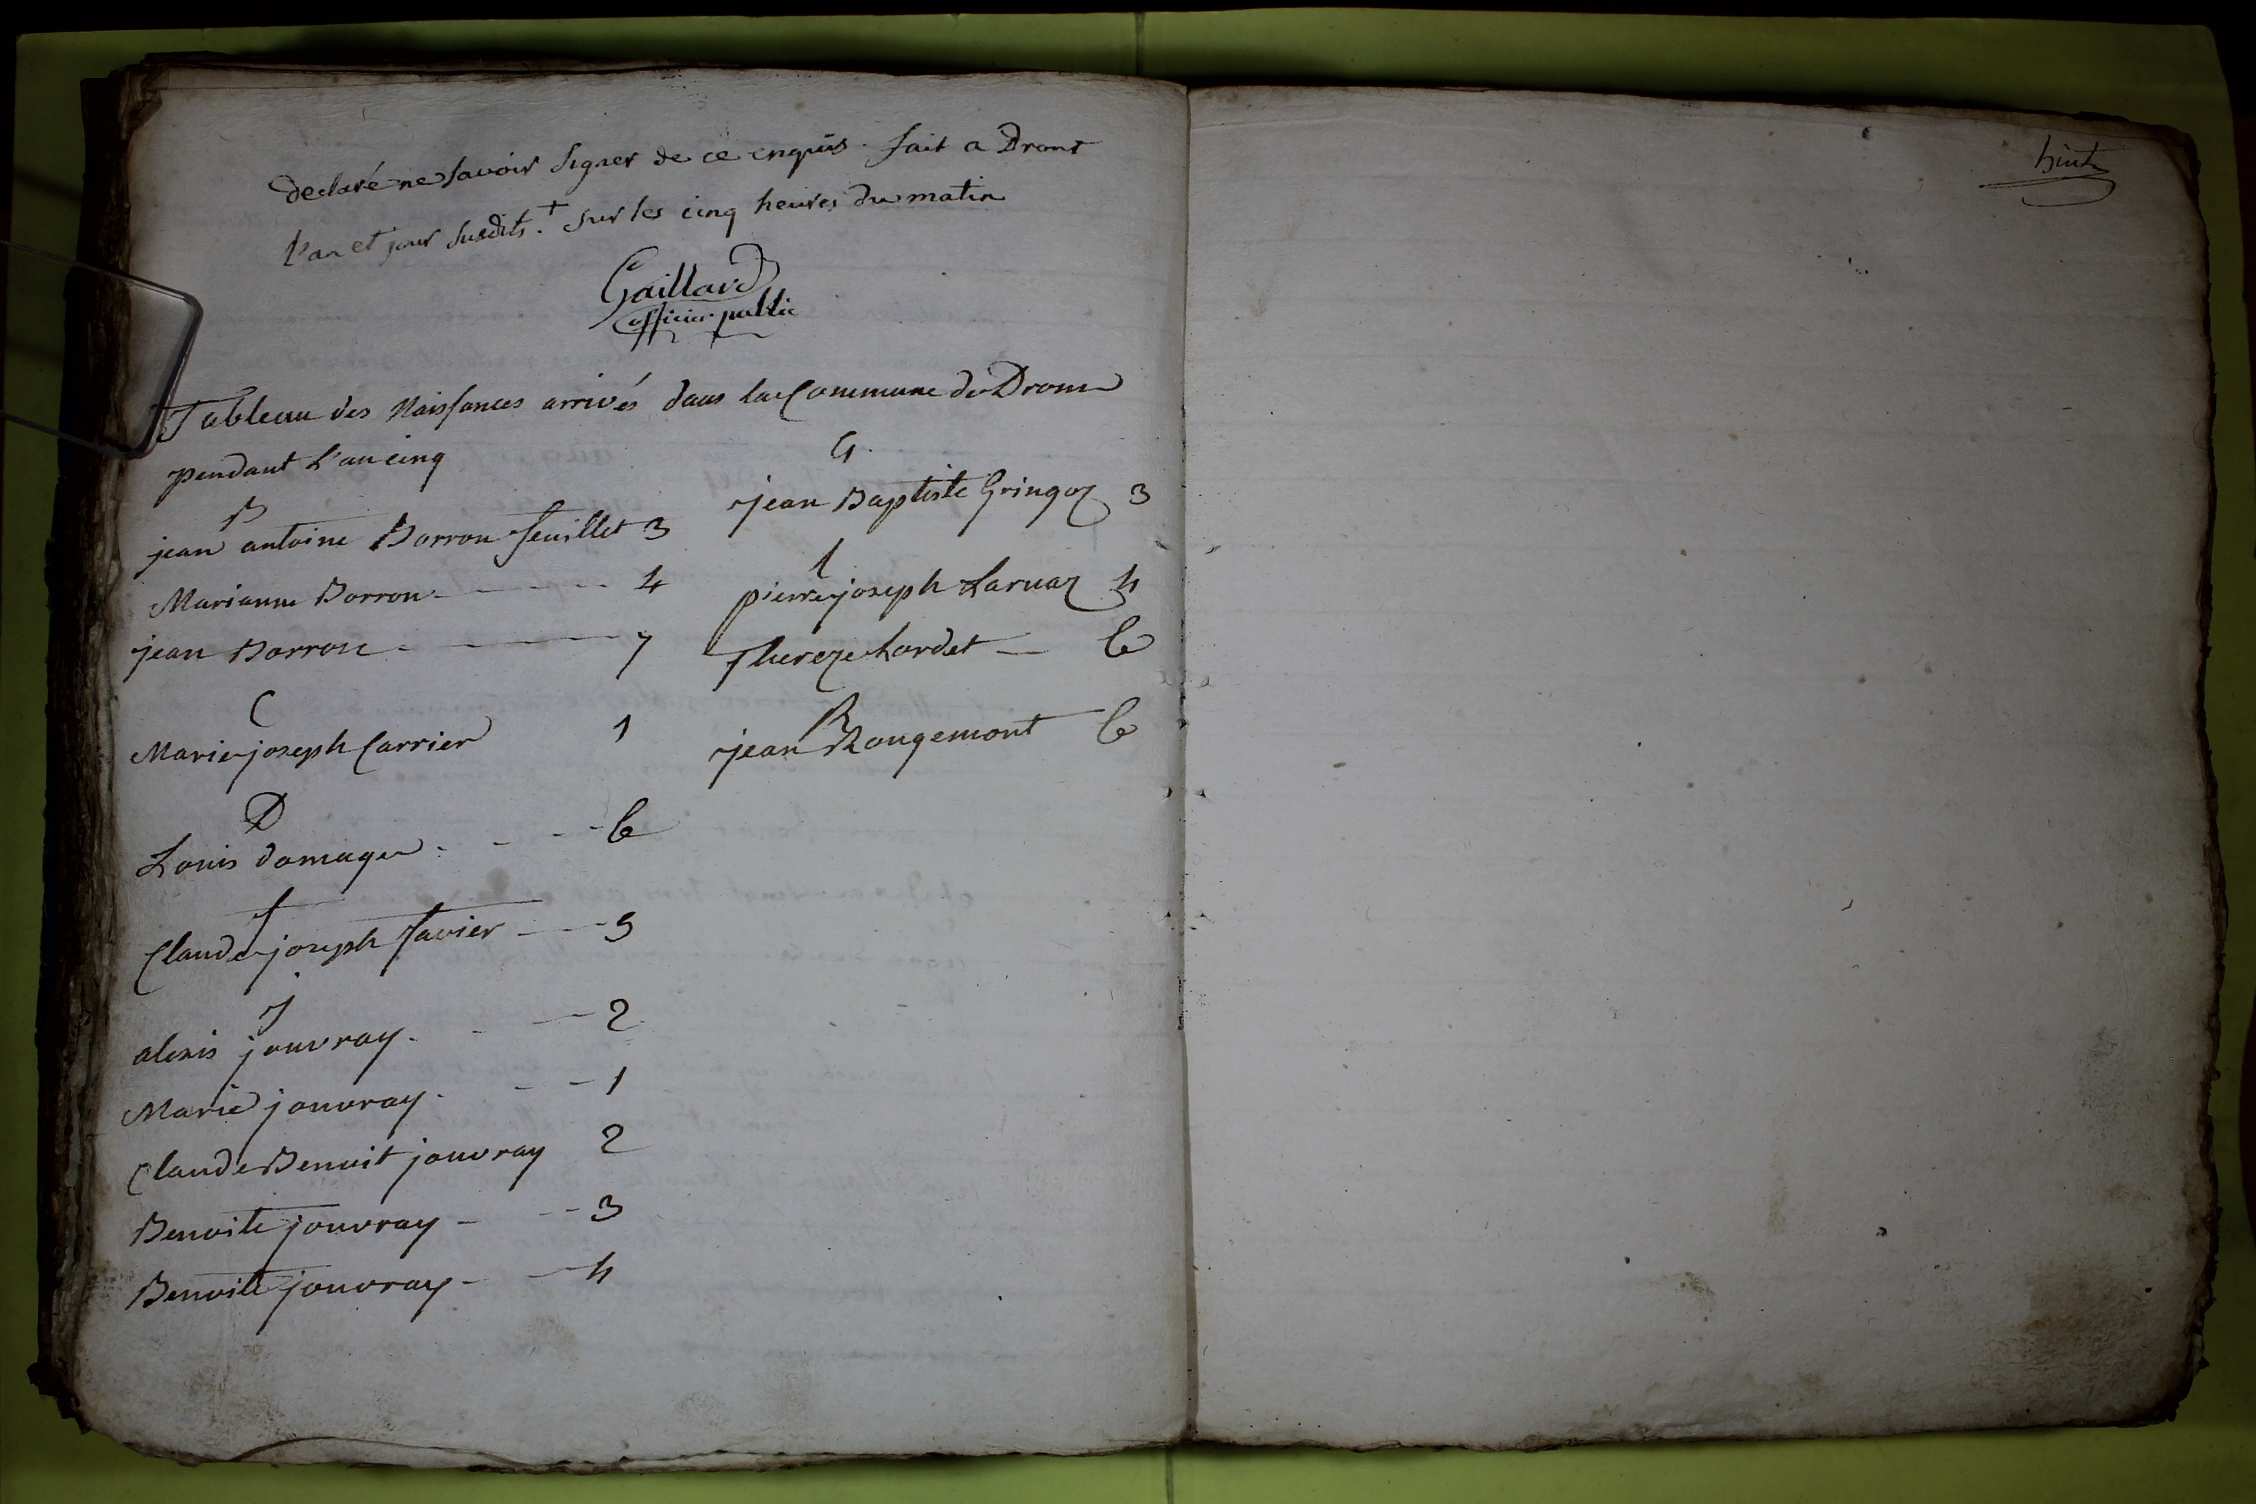 declaré ne Savoir Signer de ce enquis. fait a Drom
l'an et jour Susdits. + Sur les cinq heures du matin
Gaillard
officier public
Tableau des Naissances arrivés dans la Commune de Drom
pendant L'an cinq
B
jean antoine Borron feuillet 3
Marianne Borron - - - - 4
jean Borron - - - - 7
C
Marie joseph Carrier 1
D
Louis domage - - - 6
f
Claude joseph favier - - - 5
J
alexis jouvray - - - 2
Marie jouvray - - - 1
Claude Benoit jouvray 2
Benoite jouvray - - - 3
Benoite jouvray - - - 4
G
jean Baptiste Gringoz 3
l
pierre joseph Laruaz 4
Thereze Lardet - 6
R
jean Rougemont 6
huit